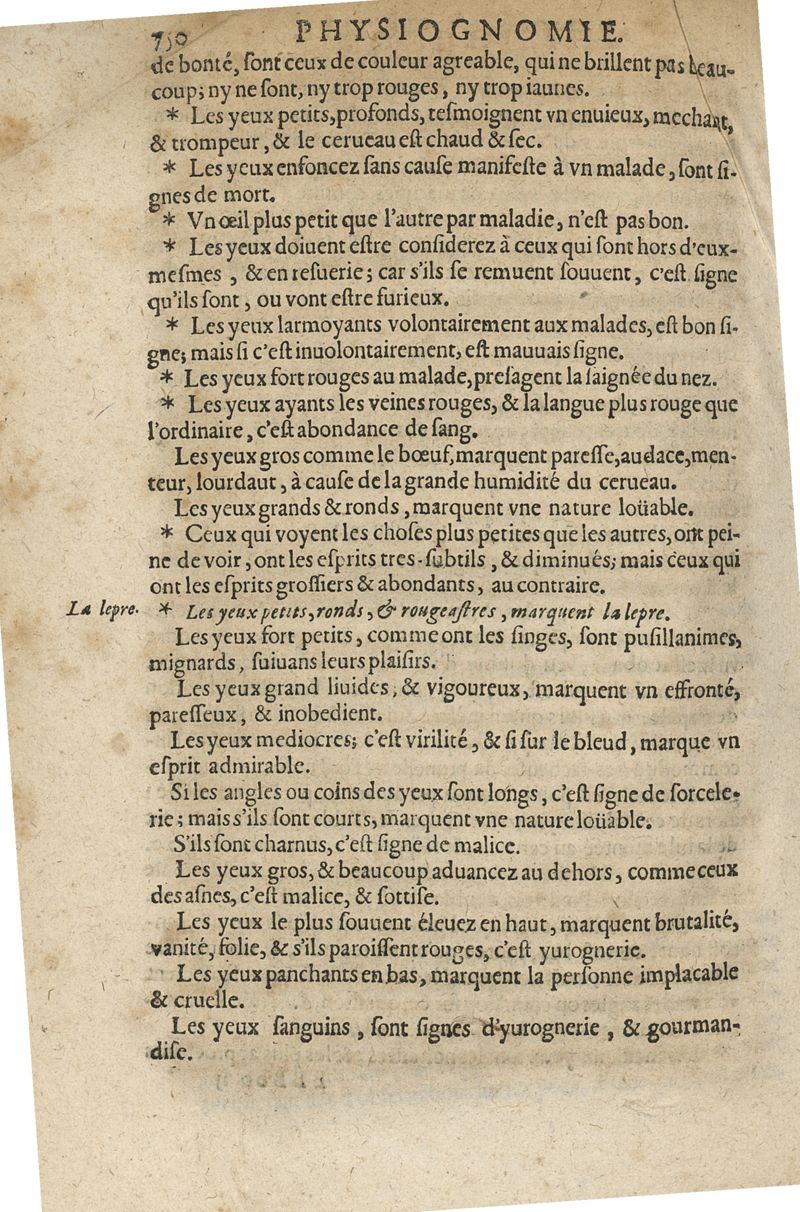 750 PHYSIOGNOMIE.
de bonté, ſont ceux de couleur agreable, qui ne brillent pas beau-
coup; ny ne ſont, ny trop rouges, ny trop iaunes.
* Les yeux petits, profonds, teſmoignent vn enuieux, mechant,
& trompeur, & le cerueau eſt chaud & ſec.
* Les yeux enfoncez ſans cauſe manifeſte à vn malade, ſont ſi-
gnes de mort.
* Vn œil plus petit que l'autre par maladie, n'eſt pas bon.
* Les yeux doiuent eſtre conſiderez à ceux qui ſont hors d'eux-
meſmes, & en reſuerie; car s'ils ſe remuent ſouuent, c'eſt ſigne
qu'ils ſont, ou vont eſtre furieux.
* Les yeux larmoyants volontairement aux malades, eſt bon ſi-
gne; mais ſi c'eſt inuolontairement, eſt mauuais ſigne.
* Les yeux fort rouges au malade, preſagent la ſaignée du nez.
* Les yeux ayants les veines rouges, & la langue plus rouge que
l'ordinaire, c'eſt abondance de ſang.
Les yeux gros comme le bœuf, marquent pareſſe, audace, men-
teur, lourdaut, à cauſe de la grande humidité du cerueau.
Les yeux grands & ronds, marquent vne nature loüable.
* Ceux qui voyent les choſes plus petites que les autres, ont pei-
ne de voir, ont les eſprits tres-ſubtils, & diminués; mais ceux qui
ont les eſprits groſſiers & abondants, au contraire.
La lepre. * Les yeux petits, ronds, & rougeaſtres, marquent la lepre.
Les yeux fort petits, comme ont les ſinges, ſont puſillanimes,
mignards, ſuiuans leurs plaiſirs.
Les yeux grand liuides, & vigoureux, marquent vn effronté,
pareſſeux, & inobedient.
Les yeux mediocres; c'eſt virilité, & ſi ſur le bleud, marque vn
eſprit admirable.
Si les angles ou coins des yeux ſont longs, c'eſt ſigne de ſorcele-
rie; mais s'ils ſont courts, marquent vne nature loüable.
S'ils ſont charnus, c'eſt ſigne de malice.
Les yeux gros, & beaucoup aduancez au dehors, comme ceux
des aſnes, c'eſt malice, & ſottiſe.
Les yeux le plus ſouuent éleuez en haut, marquent brutalité,
vanité, folie, & s'ils paroiſſent rouges, c'eſt yurognerie.
Les yeux panchants en bas, marquent la perſonne implacable
& cruelle.
Les yeux ſanguins, ſont ſignes d'yurognerie, & gourman-
diſe.